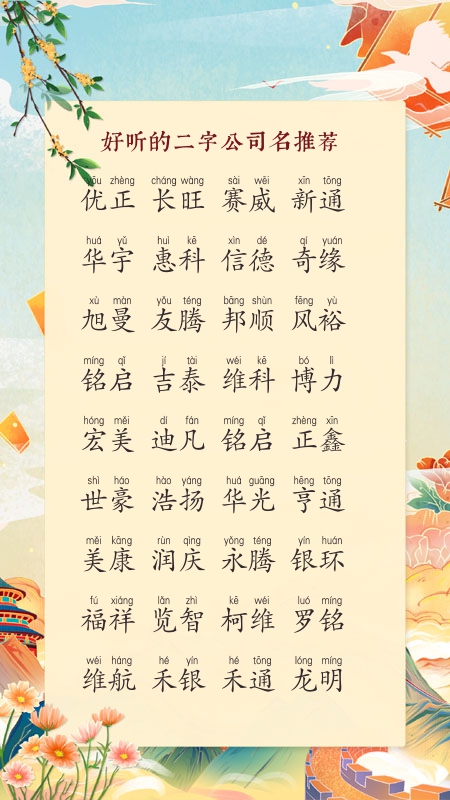 好听的二字公司名推荐
yōu zhèng cháng wàng sài wēi xīn tōng
优正 长旺 赛威 新通
huá yǔ huì kē xìn dé qí yuán
华宇 惠科 信德 奇缘
xù màn yǒu téng bāng shùn fēng yù
旭曼 友腾 邦顺 风裕
míng qǐ jí tài wéi kē bó lì
铭启 吉泰 维科 博力
hóng měi dí fán míng qǐ zhèng xīn
宏美 迪凡 铭启 正鑫
shì háo hào yáng huá guāng hēng tōng
世豪 浩扬 华光 亨通
měi kāng rùn qìng yǒng téng yín huán
美康 润庆 永腾 银环
fú xiáng lǎn zhì kē wéi luó míng
福祥 览智 柯维 罗铭
wéi háng hé yín hé tōng lóng míng
维航 禾银 禾通 龙明